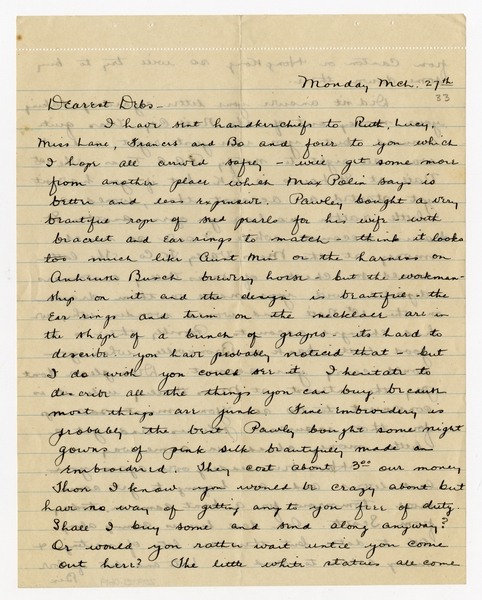 Monday Mch. 27th
33
Dearest Debs-
I have sent handkerchiefs to Ruth, Lucy,
Miss Lane, Frances and Bo and four to you which
I hope all arrived safely - will get some more
from another place which Max Polin says is
better and less expensive. Pawley bought a very
beautiful rope of seed pearls for his wife with
bracelet and ear rings to match - think it looks
too much like Aunt Min or the harness on
Anheuser Busch brewery horse - but the workman-
ship on it and the design is beautiful - the
ear rings and trim on the necklace are in
the shape of a bunch of grapes - its hard to
describe - you have probably noticed that - but
I do wish you could see it. I hesitate to
describe all the things you can buy because
most things are junk. Fine embroidery is
probably the best. Pawley bought some night
gowns of pink silk beautifully made and
embroidered. They cost about 3.00 our money
Those I know you would be crazy about but
have no way of getting any to you free of duty.
Shall I buy some and send along anyway?
Or would you rather wait until you come
out here? The little white statues all come